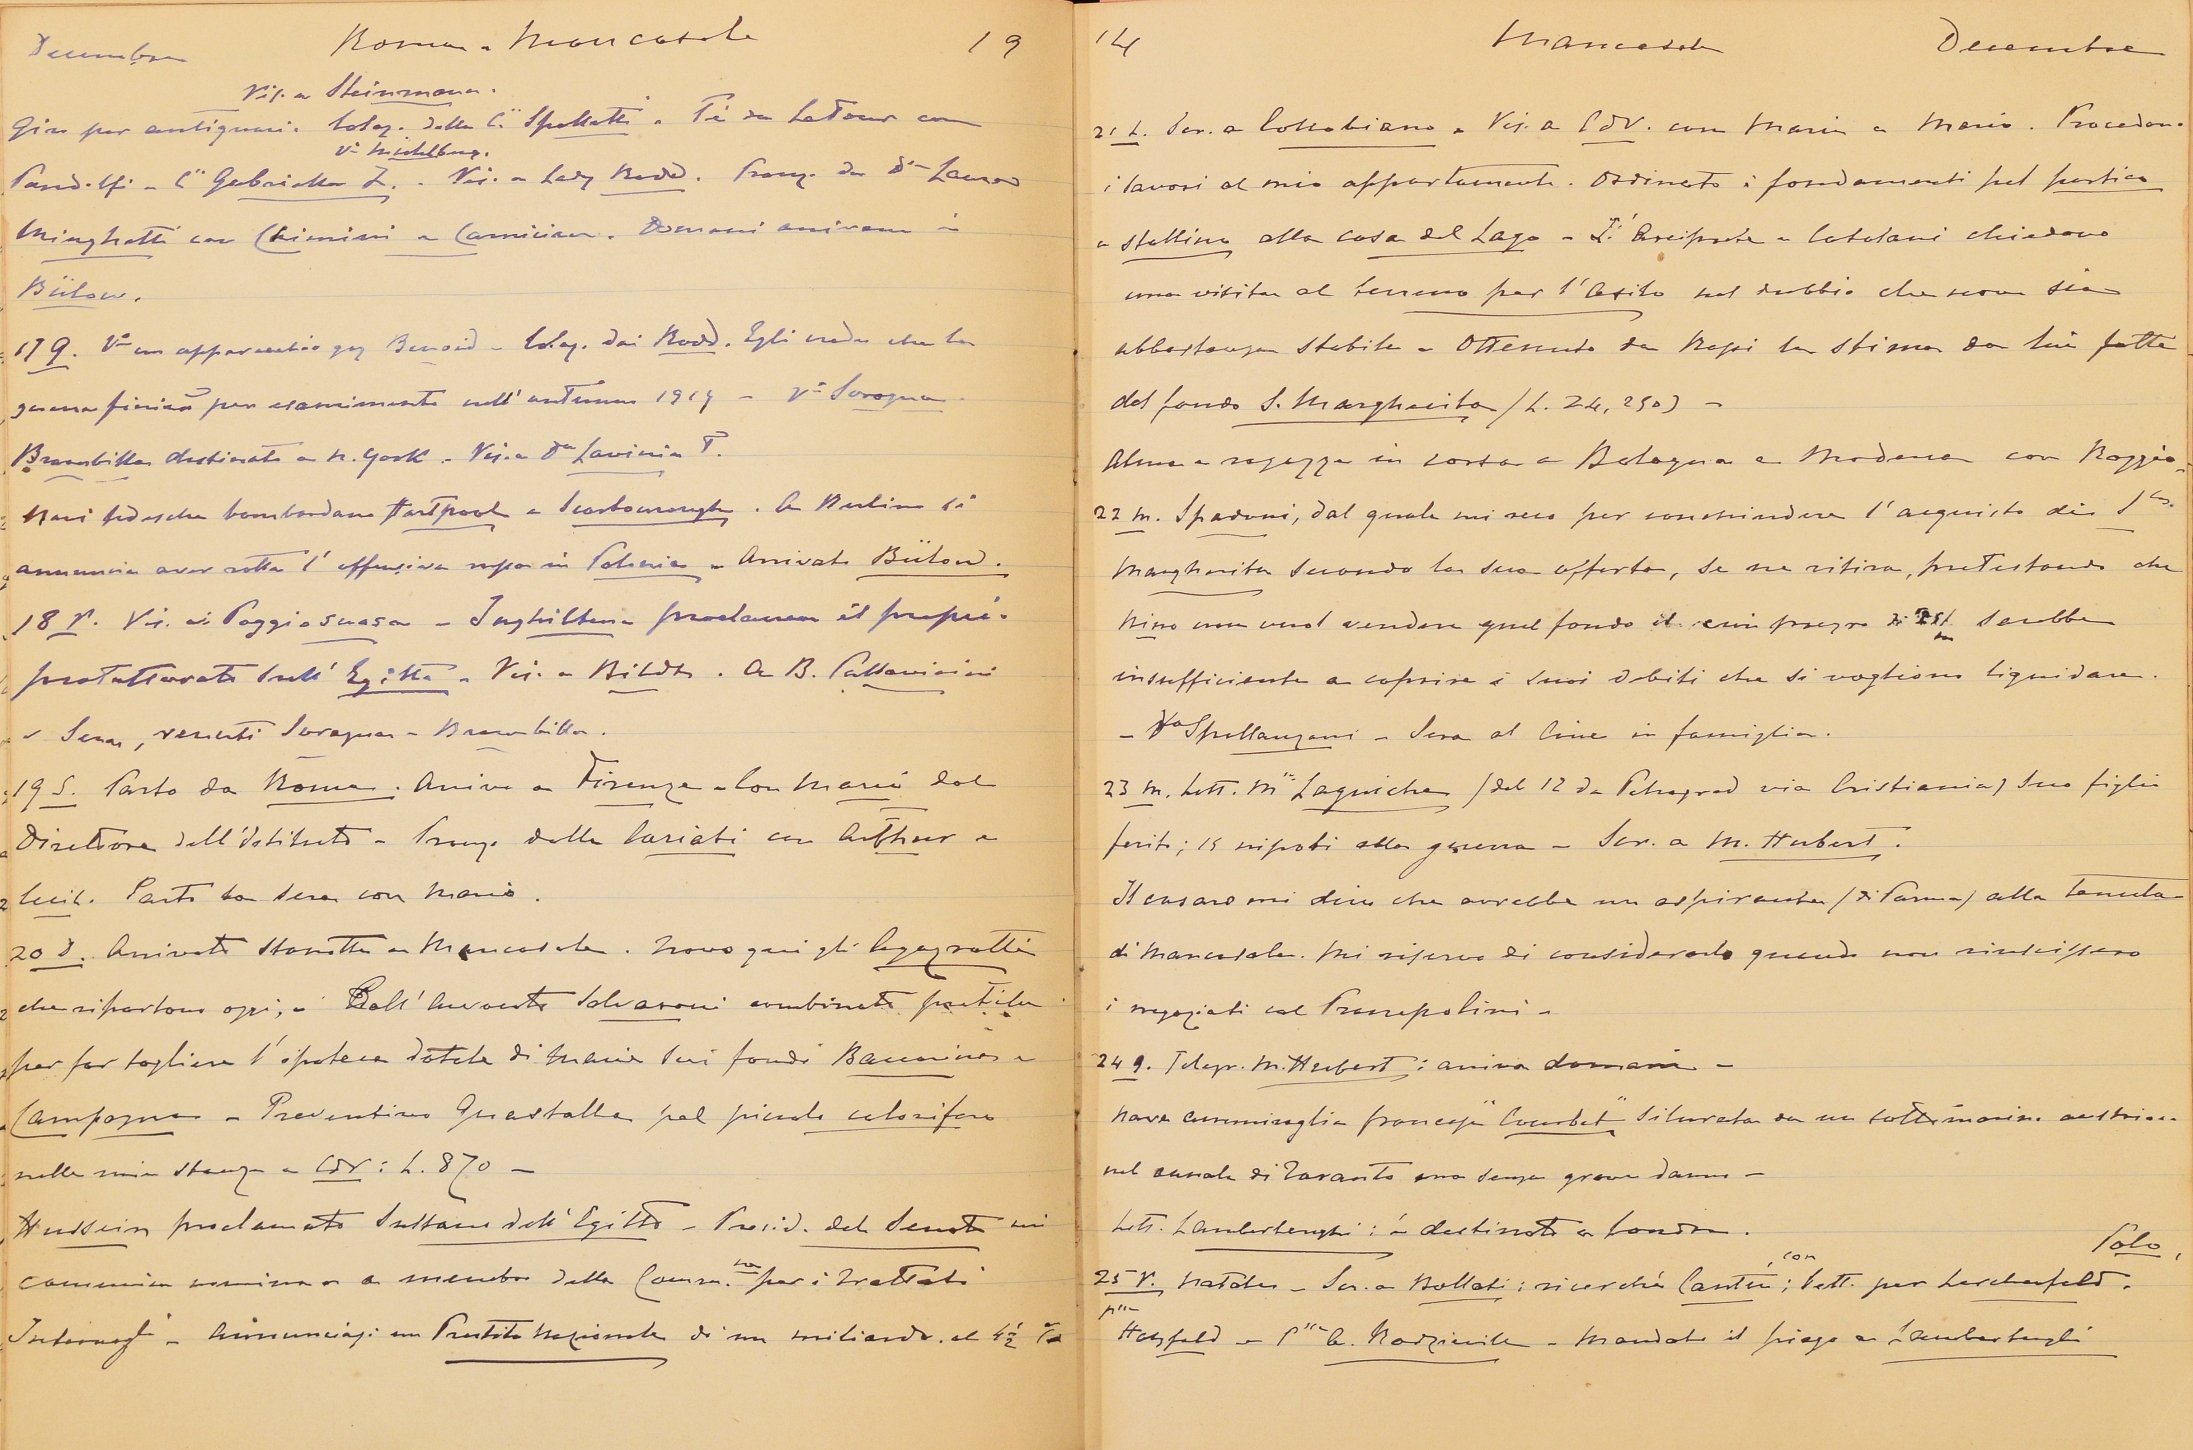 Decembre Roma - Mancasale 19
Vis. a Steinmann.
Giro per antiquari. Colaz. dalla C.ssa Spalletti. Tè da LaTour con
Va Mühlberg.
Pandolfi - C.ssa Gabriella Z. - Vis. a Lady Rodd. Pranz. da Da Laura
Minghetti con Chimirri e . Domani arrivano i
Bülow.
17 g. Va un apparecchio gaz - Colaz. dai Rodd. Egli crede che la
guerra finirà per esaurimento nell'autunno 1914 - Va Soragna
Brambilla destinato a N. York. Vis. a Da Lavinia T.
Navi tedesche bombardano Hartpool e Scarborough. A Berlino si
annuncia aver rotta l'offensiva russa in Polonia - Arrivato Bülow.
18 V. Vis. ai Poggiosuasa - Inghilterra proclama il proprio
protettorato sull'Egitto - Vis. a Bildt. A B. Pallavicini
- Sera, venuti Soragna - Brambilla.
19 S. Parto da Roma. Arrivo a Firenze - Con Mario dal
Direttore dell'Istituto - Pranzo dalla Cariati con Arthur e
Lucil. Parto la sera con Mario.
20 D. Arrivato stanotte a Mancasale. Trovo qui gli
che ripartono oggi, - Coll'Avvocato Salvaroni combinate pratiche
per far togliere l'ipoteca dotale di Maria sui fondi e
Campagna - Preventivo Guastalla pel piccolo calorifero
nelle mie stanze a CdV: L. 870 -
Hussein proclamato Sultano dell'Egitto - Presid. del Senato mi
comunica nomina a membro della Comm.ne per i trattati
Internaz.li - Annunciasi un Prestito Nazionale di un miliardo al 4½ %
14 Mancasale Decembre
21 L. Scr. a Collobiano - Vis. a CdV. con Maria e Mario. Procedono
i lavori al mio appartamento. Ordinato i fondamenti pel portico
e stallino alla casa del Lago - L'Arciprete e Catelani chiedono
una visita al terreno per l'Asilo nel dubbio che non sia
abbastanza stabile - Ottenuto da la stima da lui fatta
del fondo S. Margherita (L. 24,250) -
Alma e ragazze in corsa a Bologna e Modena con
22 M. Spadoni, dal quale mi reco per conchiudere l'acquisto di S.ta
Margherita secondo la sua offerta, se ne ritira, protestando che
Nino non vuol vendere quel fondo il cui prezzo di sarebbe
insufficiente a coprire i suoi debiti che si vogliono liquidare.
- Va Spallanzani - Sera al Cine in famiglia.
23 M. Lett. M.me Laguiche (del 12 da Petrograd via Cristiania) suo figlio
ferito; 15 nipoti alla guerra - Scr. a M. Hubert.
Il casaro mi dice che avrebbe un aspirante (di Parma) alla tenuta
di Mancasale. Mi riservo di considerarlo quando non riuscissero
i negoziati col Prampolini -
24 g. Telegr. M. Hubert: arriva domani -
Nave ammiraglia francese "Courbet" silurata da un sottomarino austriaco
nel canale di Taranto ma senza grave danno -
Lett. Lambertenghi: è destinato a Londra.
Polo,
25 V. Natale - Scr. a Bollati: ricerche con Cantù; Lett. per Lerchenfeld,
P.ssa Hatzfeld - P.ssa B. Radziwill - Mandato il piego a Lambertenghi